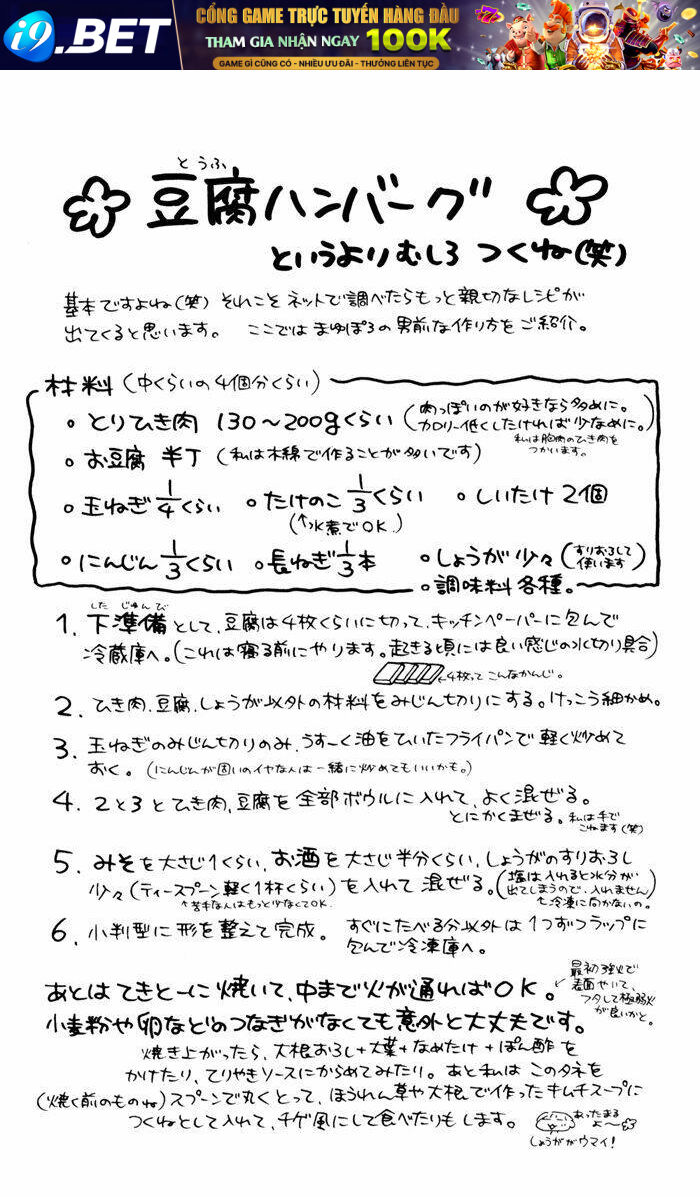 i9.BET
CỔNG GAME TRỰC TUYẾN HÀNG ĐẦU
THAM GIA NHẬN NGAY 100K
GAME GÌ CŨNG CÓ - NHIỀU ƯU ĐÃI - THƯỞNG LIÊN TỤC
とうふ
豆腐ハンバーグ
というよりむしろ つくね(笑)
基本ですよね(笑) それこそネットで調べたらもっと親切なレシピが
出てくると思います。 ここではまゆぽろの男前な作り方をご紹介。
材料(中くらいの4個分くらい)
○とりひき肉 130〜200gくらい(肉っぽいのが好きなら多めに。
カロリー低くしたければ少なめに。)
私は胸肉のひき肉を
つかいます。
○お豆腐 半丁(私は木綿で作ることが多いです)
○玉ねぎ1/4くらい ○たけのこ1/3くらい ○しいたけ2個
(↑水煮でOK.)
○にんじん1/3くらい ○長ねぎ1/3本 ○しょうが少々(すりおろして
使います)
○調味料各種。
した じゅんび
1. 下準備として、豆腐は4枚くらいに切って、キッチンペーパーに包んで
冷蔵庫へ。(これは寝る前にやります。起きる頃には良い感じの水切り具合)
←4枚って こんなかんじ。
2. ひき肉、豆腐、しょうが以外の材料をみじん切りにする。けっこう細かめ。
3. 玉ねぎのみじん切りのみ、うすーく油をひいたフライパンで軽く炒めて
おく。(にんじんが固いのイヤな人は一緒に炒めてもいいかも。)
4. 2と3とひき肉、豆腐を全部ボウルに入れて、よく混ぜる。
とにかくまぜる。私は手で
こねます(笑)
5. みそを大さじ1くらい、お酒を大さじ半分くらい、しょうがのすりおろし
少々(ティースプーン軽く1杯くらい)を入れて混ぜる。(塩は入れると水分が
出てしまうので、入れません)
↑苦手な人はもっと少なくてOK.
↑冷凍に向かないの。
6. 小判型に形を整えて完成。 すぐにたべる分以外は1つずつラップに
包んで冷凍庫へ。
あとはてきとーに焼いて、中まで火が通ればOK。
↙最初強火で
表面やいて、
フタして極弱火
が良いかと。
小麦粉や卵などのつなぎがなくても意外と大丈夫です。
焼き上がったら、大根おろし+大葉+なめたけ+ぽん酢を
かけたり、てりやきソースにからめてみたり。あと私はこのタネを
(焼く前のものね)スプーンで丸くとって、ほうれん草や大根で作ったキムチスープに
つくねとして入れて、チゲ風にして食べたりもします。
あったまる
よ〜
しょうががウマイ!